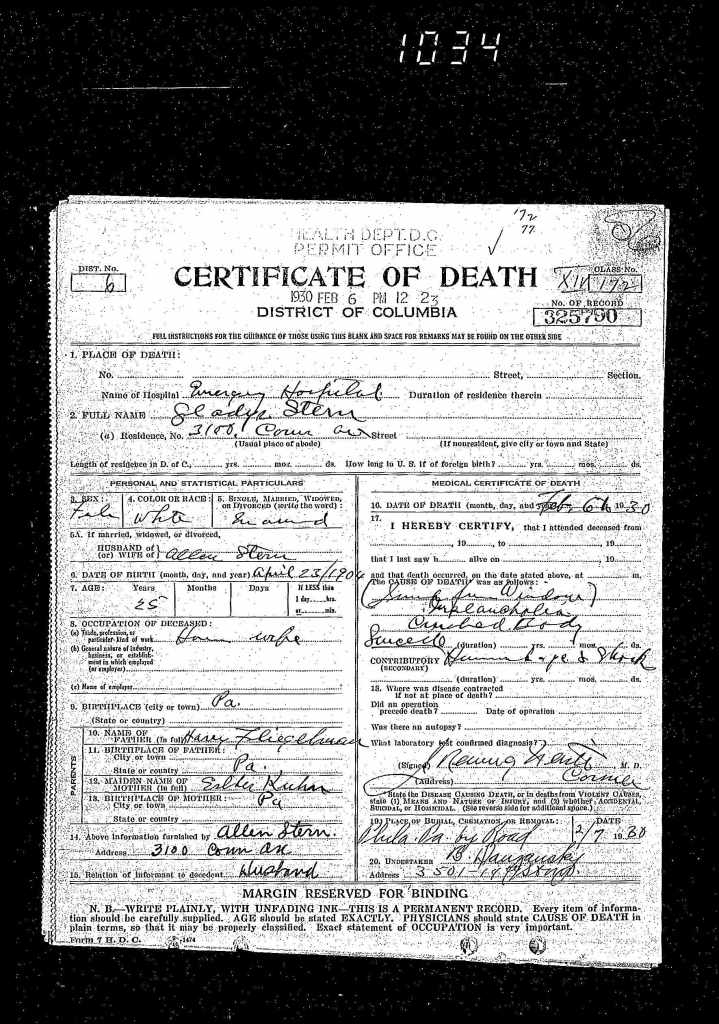 1034
172
77
HEALTH DEPT. D.C.
PERMIT OFFICE
DIST. No.
6
CERTIFICATE OF DEATH
CLASS No.
XIV 172
1930 FEB 6 PM 12 23
DISTRICT OF COLUMBIA
No. OF RECORD
325790
FULL INSTRUCTIONS FOR THE GUIDANCE OF THOSE USING THIS BLANK AND SPACE FOR REMARKS MAY BE FOUND ON THE OTHER SIDE
1. PLACE OF DEATH:
No. Street, Section.
Name of Hospital Emergency Hospital Duration of residence therein
2. FULL NAME Gladys Stern
(a) Residence, No. 3100 Conn av Street
(Usual place of abode) (If nonresident, give city or town and State)
Length of residence in D. of C., yrs. mos. ds. How long in U. S. if of foreign birth? yrs. mos. ds.
PERSONAL AND STATISTICAL PARTICULARS
3. SEX: 4. COLOR OR RACE: 5. SINGLE, MARRIED, WIDOWED,
OR DIVORCED (write the word):
White
5A. If married, widowed, or divorced,
HUSBAND of
(or) WIFE of Allen Stern
6. DATE OF BIRTH (month, day, and year) April 23/1904
7. AGE: Years Months Days If LESS than
1 day, hrs.
25 or min.
8. OCCUPATION OF DECEASED:
(a) Trade, profession, or
particular kind of work House wife
(b) General nature of industry,
business, or establish-
ment in which employed
(or employer)
(c) Name of employer
9. BIRTHPLACE (city or town) Pa.
(State or country)
PARENTS
10. NAME OF
FATHER (in full) Harry Fliegelman
11. BIRTHPLACE OF FATHER:
City or town
State or country Pa.
12. MAIDEN NAME OF
MOTHER (in full) Esther Kuhn
13. BIRTHPLACE OF MOTHER: Pa
City or town
State or country
14. Above information furnished by Allen Stern.
Address 3100 Conn av
15. Relation of informant to decedent Husband
MEDICAL CERTIFICATE OF DEATH
16. DATE OF DEATH (month, day, and year) Feb. 6th 1930
17.
I HEREBY CERTIFY, that I attended deceased from
, 19 to , 19
that I last saw h alive on , 19
and that death occurred, on the date stated above, at m.
The CAUSE OF DEATH was as follows:
Window
Melancholia
Crushed Body
Suicide (duration) yrs. mos. ds.
CONTRIBUTORY & Shock
(SECONDARY)
(duration) yrs. mos. ds.
18. Where was disease contracted
if not at place of death?
Did an operation
precede death? Date of operation
Was there an autopsy?
What laboratory test confirmed diagnosis?
(Signed) M. D.
(Address) Coroner
State the DISEASE CAUSING DEATH, or in deaths from VIOLENT CAUSES,
state (1) MEANS AND NATURE OF INJURY, and (2) whether ACCIDENTAL,
SUICIDAL, or HOMICIDAL. (See reverse side for additional space.)
19. PLACE OF BURIAL, CREMATION, OR REMOVAL: DATE
Phila. Pa. by Road 2/7 1930
20. UNDERTAKER B. Danzansky
Address 3501-14th St nw.
MARGIN RESERVED FOR BINDING
N. B.—WRITE PLAINLY, WITH UNFADING INK—THIS IS A PERMANENT RECORD. Every item of informa-
tion should be carefully supplied. AGE should be stated EXACTLY. PHYSICIANS should state CAUSE OF DEATH in
plain terms, so that it may be properly classified. Exact statement of OCCUPATION is very important.
Form 7 H. D. C. 1474